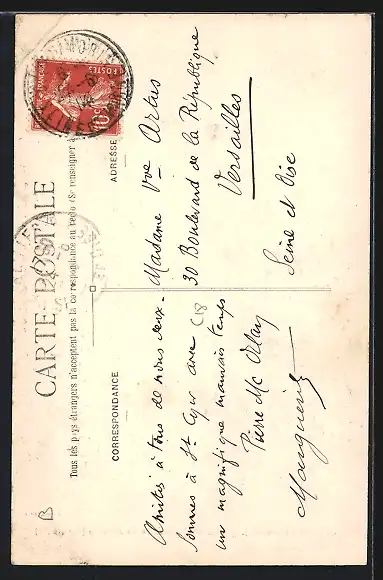 CARTE POSTALE
Tous les pays étrangers n'acceptent pas la correspondance au recto (Se renseigner à
CORRESPONDANCE
ADRESSE
Amitiés à tous de nous deux.
Sommes à St Cyr avec
un magnifique mauvais temps
Pierre
Madame Vve Artus
30 Boulevard de la République
Versailles
Seine et Oise
C18
POSTES
10
B